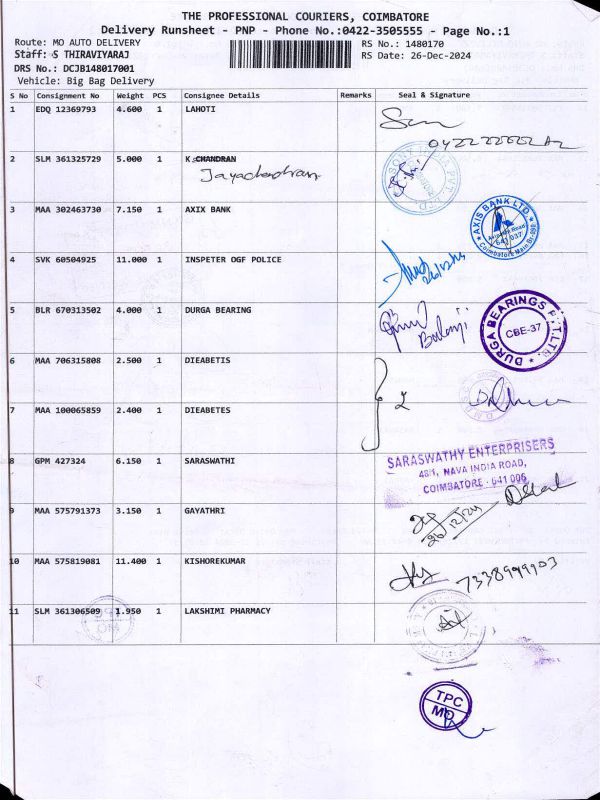 THE PROFESSIONAL COURIERS, COIMBATORE
Delivery Runsheet - PNP - Phone No.:0422-3505555 - Page No.:1
Route: MO AUTO DELIVERY
RS No.: 1480170
Staff: S THIRAVIYARAJ
RS Date: 26-Dec-2024
DRS No.: DCJB148017001
Vehicle: Big Bag Delivery
S No Consignment No Weight PCS Consignee Details Remarks Seal & Signature
1 EDQ 12369793 4.600 1 LAHOTI
2 SLM 361325729 5.000 1 K CHANDRAN
Jayachandran
3 MAA 302463730 7.150 1 AXIX BANK
AXIS BANK LTD.
641 037
4 SVK 60504925 11.000 1 INSPETER OGF POLICE
5 BLR 670313502 4.000 1 DURGA BEARING
Balaji
DURGA BEARINGS PVT. LTD.
CBE-37
6 MAA 706315808 2.500 1 DIEABETIS
7 MAA 100065859 2.400 1 DIEABETES
8 GPM 427324 6.150 1 SARASWATHI
SARASWATHY ENTERPRISERS
48/1, NAVA INDIA ROAD,
COIMBATORE - 641 006
9 MAA 575791373 3.150 1 GAYATHRI
26/12/24
10 MAA 575819081 11.400 1 KISHOREKUMAR
7338999903
11 SLM 361306509 1.950 1 LAKSHIMI PHARMACY
TPC
MO